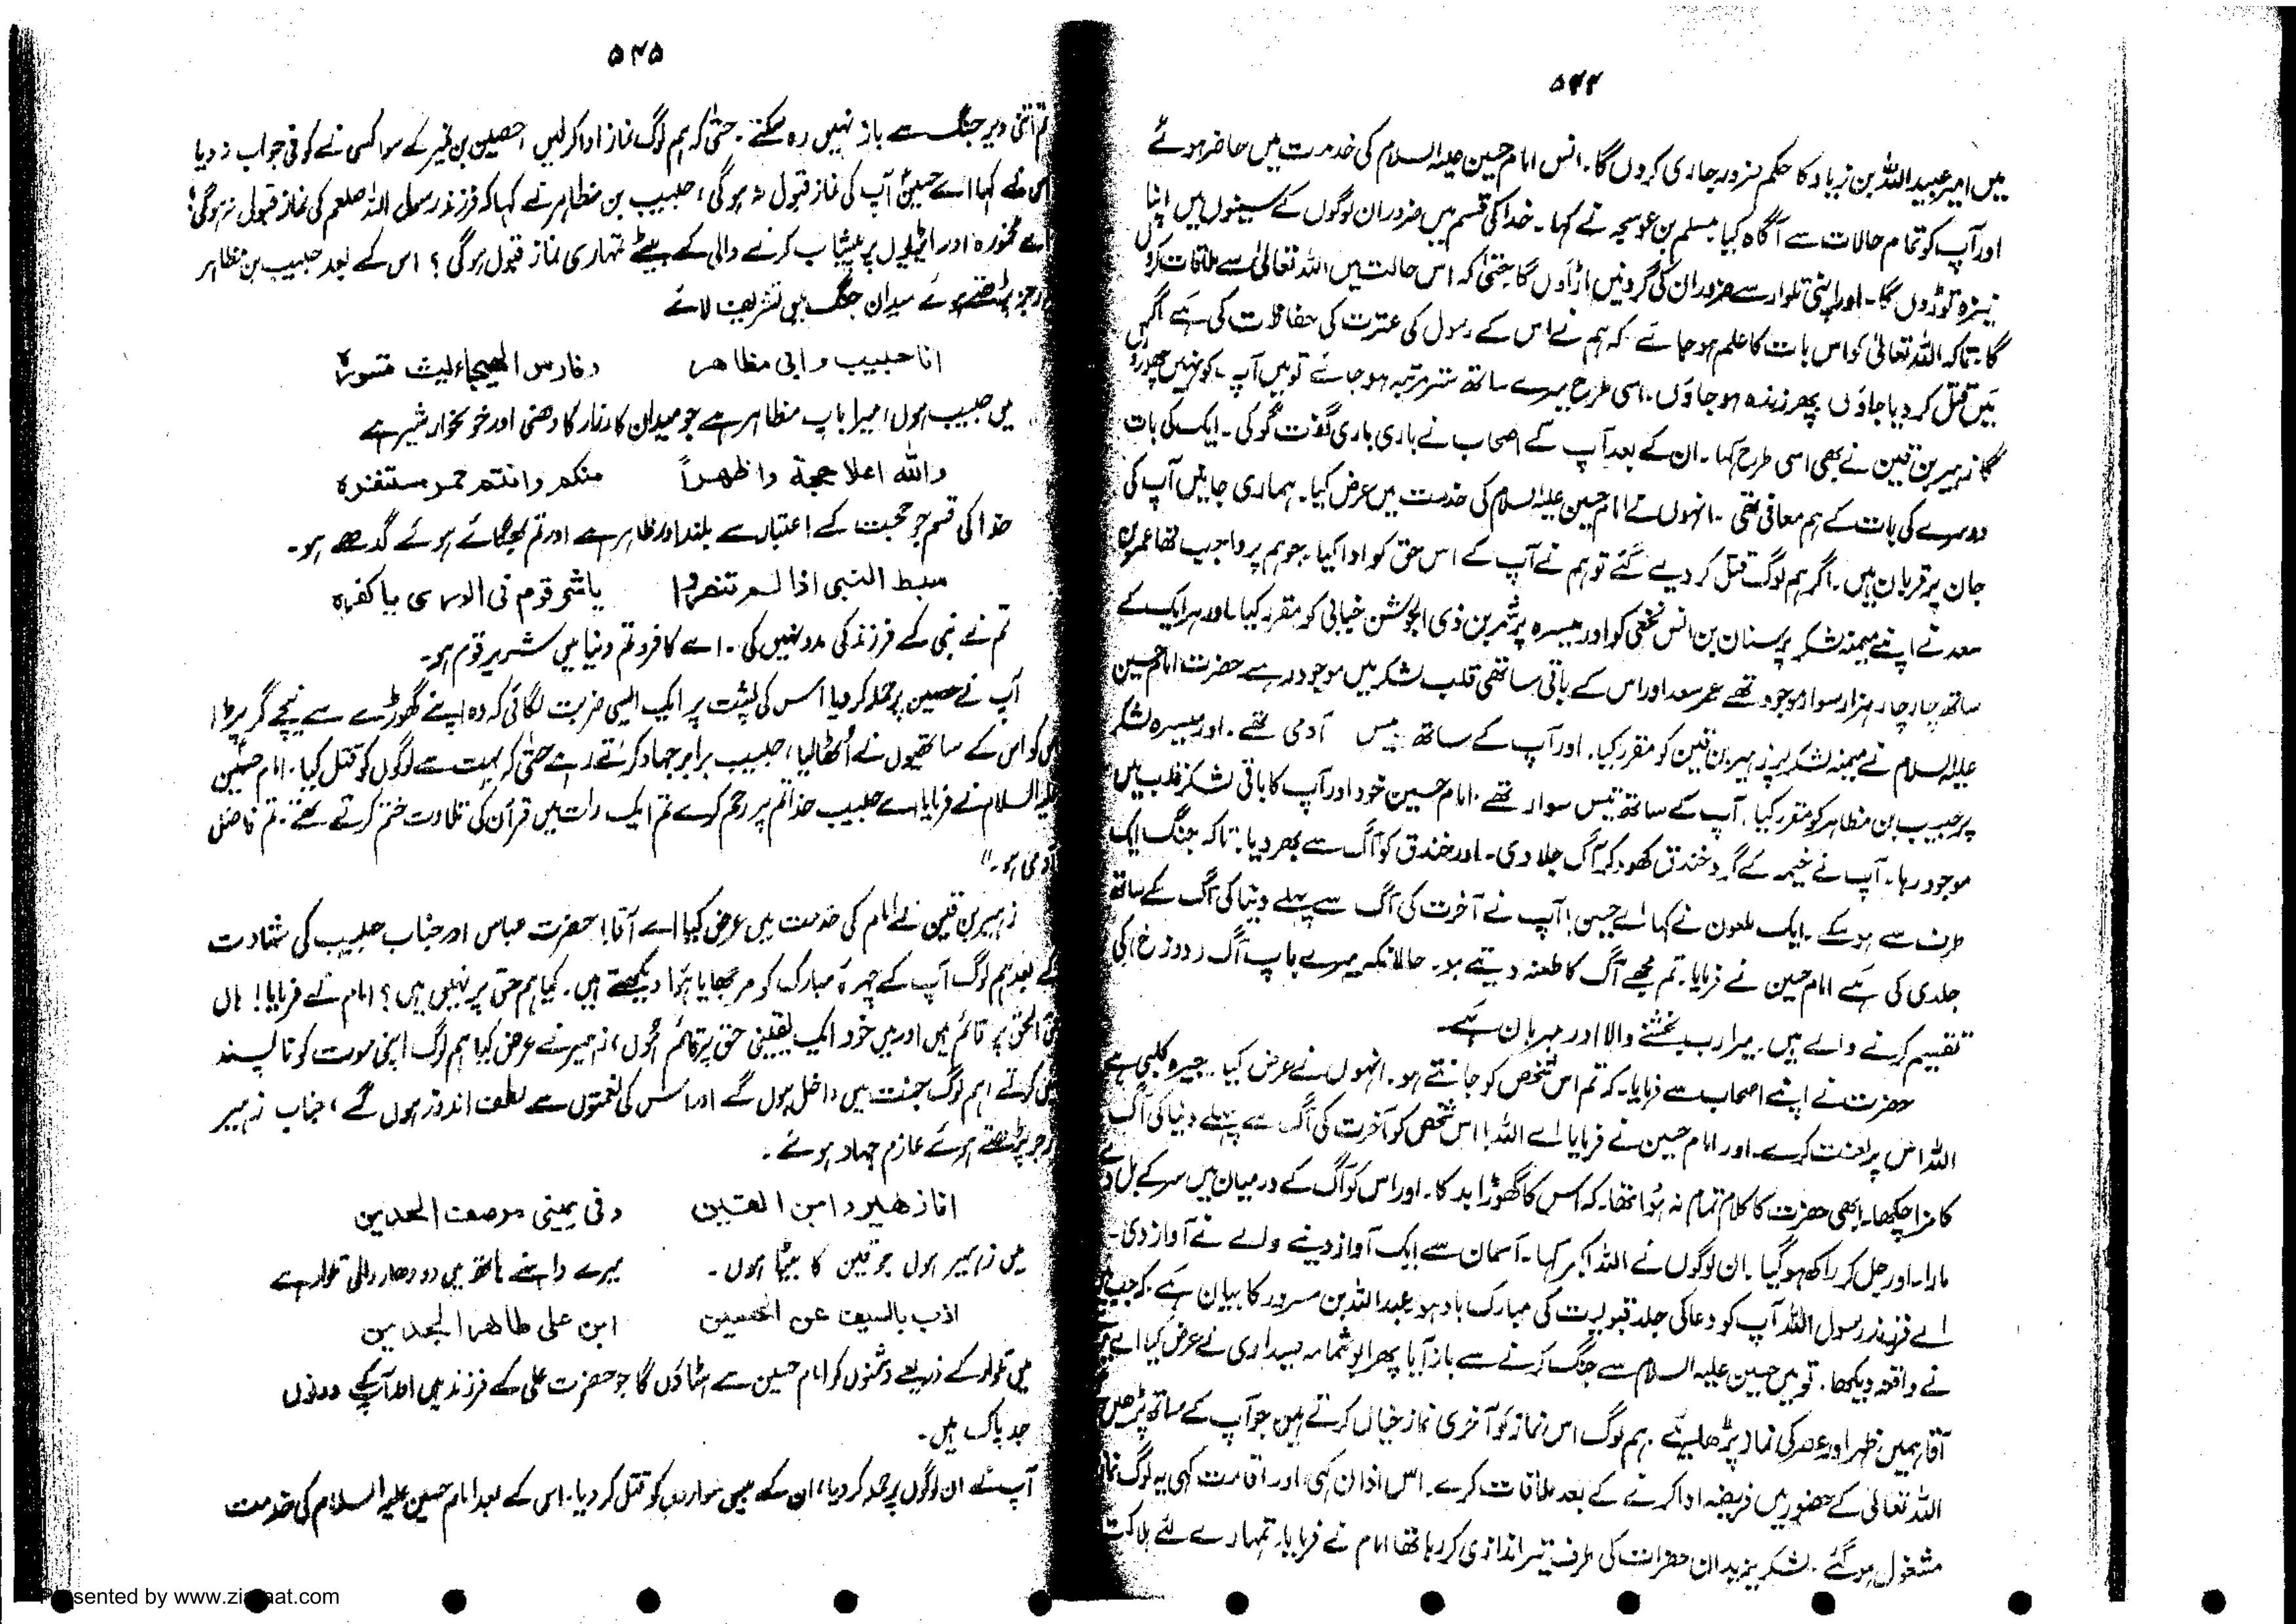 ۵۴۴
میں امیر عبید اللہ بن زیاد کا حکم ضرور جاری کردں گا۔ انس امام حسین علیہ السلام کی خدمت میں حاضر ہوئے
اور آپ کو تمام حالات سے آگاہ کیا مسلم بن عوسجہ نے کہا۔ خدا کی قسم میں ضرور ان لوگوں کے سینوں میں اپنا
نیزہ توڑ دوں گا۔ اور اپنی تلوار سے ضرور ان کی گردنیں اڑاؤں گا حتیٰ کہ اس حالت میں اللہ تعالیٰ سے ملاقات کروں
گا۔ تاکہ اللہ تعالیٰ کو اس بات کا علم ہو جائے کہ ہم نے اس کے رسول کی عترت کی حفاظت کی ہے اگر
میں قتل کر دیا جاؤں پھر زندہ ہو جاؤں۔ اسی طرح میرے ساتھ ستر مرتبہ ہو جائے تو میں آپ کو نہیں چھوڑوں
گا زہیر بن قین نے بھی اسی طرح کہا۔ ان کے بعد آپ کے اصحاب نے باری باری گفت گو کی۔ ایک کی بات
دوسرے کی بات کے ہم معافی تھی۔ انہوں نے امام حسین علیہ السلام کی خدمت میں عرض کیا۔ ہماری جانیں آپ کی
جان پر قربان ہیں۔ اگر ہم لوگ قتل کر دیے گئے تو ہم نے آپ کے اس حق کو ادا کیا۔ جو ہم پر واجب تھا عمر بن
سعد نے اپنے میمنہ لشکر پر سنان بن انس نخعی کو اور میسرہ پر شمر بن ذی الجوشن ضبابی کو مقرر کیا اور ہر ایک کے
ساتھ چار چار ہزار سوار موجود تھے عمر سعد اور اس کے باقی ساتھی قلب لشکر میں موجود رہے حضرت امام حسین
علیہ السلام نے میمنہ لشکر پر زہیر بن قین کو مقرر کیا۔ اور آپ کے ساتھ بیس آدمی تھے۔ اور میسرہ لشکر
پر حبیب بن مظاہر کو مقرر کیا۔ آپ کے ساتھ تیس سوار تھے۔ امام حسین خود اور آپ کا باقی لشکر قلب میں
موجود رہا۔ آپ نے خیمہ کے گرد خندق کھود کر آگ جلا دی۔ اور خندق کو آگ سے بھر دیا۔ تاکہ جنگ ایک
طرف سے ہو سکے۔ ایک ملعون نے کہا اے حسین! آپ نے آخرت کی آگ سے پہلے دنیا کی آگ کے ساتھ
جلدی کی ہے امام حسین نے فرمایا۔ تم مجھے آگ کا طعنہ دیتے ہو۔ حالانکہ میرے باپ آگ (دوزخ) کی
تقسیم کرنے والے ہیں۔ میرا رب بخشنے والا اور مہربان ہے
حضرت نے اپنے اصحاب سے فرمایا۔ کہ تم اس شخص کو جانتے ہو۔ انہوں نے عرض کیا۔ جبیرہ کلبی ہے
اللہ اس پر لعنت کرے۔ اور امام حسین نے فرمایا اے اللہ! اس شخص کو آخرت کی آگ سے پہلے دنیا کی آگ
کا مزا چکھا۔ ابھی حضرت کا کلام تمام نہ ہوا تھا۔ کہ اس کا گھوڑا بدکا۔ اور اس کو آگ کے درمیان میں سر کے بل دے
مارا۔ اور جل کر راکھ ہو گیا۔ ان لوگوں نے اللہ اکبر کہا۔ آسمان سے ایک آواز دینے والے نے آواز دی۔
اے فرزند رسول اللہ آپ کو دعا کی جلد قبولیت کی مبارک باد ہو عبد اللہ بن مسرور کا بیان ہے کہ جب میں
نے واقعہ دیکھا۔ تو میں حسین علیہ السلام سے جنگ کرنے سے باز آیا پھر ابو شمامہ صیداری نے عرض کیا اے
آقا ہمیں ظہر اور عصر کی نماز پڑھا دیجئے۔ ہم لوگ اس نماز کو آخری نماز خیال کرتے ہیں جو آپ کے ساتھ پڑھیں
اللہ تعالیٰ کے حضور میں فریضہ ادا کرنے کے بعد ملاقات کرے۔ اس اذان کہی اور اقامت کہی یہ لوگ نماز
مشغول ہو گئے۔ لشکر یزید ان حضرات کی طرف تیر اندازی کر رہا تھا امام نے فرمایا۔ تمہارے لئے ہلاکت
۵۴۵
تم اتنی دیر جنگ سے باز نہیں رہ سکتے۔ حتیٰ کہ ہم لوگ نماز ادا کر لیں، حصین بن نمیر کے سوا کسی نے کوئی جواب نہ دیا
اس نے کہا اے حسینؑ آپ کی نماز قبول نہ ہو گی، حبیب بن مظاہر نے کہا کہ فرزند رسول اللہ صلعم کی نماز قبول نہ ہو گی؛
اے مخمورہ اور ایڑیوں پر پیشاب کرنے والی کے بیٹے تمہاری نماز قبول ہو گی؟ اس کے بعد حبیب بن مظاہر
رجز پڑھتے ہوئے میدان جنگ میں تشریف لائے
انا حبیب و ابی مظاھر وفارس الھیجاء لیث قسورۃ
میں حبیب ہوں، میرا باپ مظاہر ہے جو میدان کارزار کا دھنی اور خونخوار شیر ہے
واللہ اعلا حجۃ واظھراً منکم وانتم حمر مستنفرہ
خدا کی قسم جو حجت کے اعتبار سے بلند اور ظاہر ہے اور تم بھگائے ہوئے گدھے ہو۔
سبط النبی اذا لم تنصروا یا شر قوم فی الوری یا کفرہ
تم نے نبی کے فرزند کی مدد نہیں کی۔ اے کافرو تم دنیا میں شریر قوم ہو۔
آپ نے حصین پر حملہ کر دیا اس کی پشت پر ایک ایسی ضربت لگائی کہ وہ اپنے گھوڑے سے نیچے گر پڑا
اس کو اس کے ساتھیوں نے اُٹھا لیا، حبیب برابر جہاد کرتے رہے حتیٰ کہ بہت سے لوگوں کو قتل کیا۔ امام حسین
علیہ السلام نے فرمایا اے حبیب خدا تم پر رحم کرے تم ایک رات میں قرآن کی تلاوت ختم کرتے تھے۔ تم فاضل
آدمی ہو۔"
زہیر بن قین نے امام کی خدمت میں عرض کیا اے آقا! حضرت عباس اور جناب حبیب کی شہادت
کے بعد ہم لوگ آپ کے چہرۂ مبارک کو مرجھایا ہوا دیکھتے ہیں۔ کیا ہم حق پر نہیں ہیں؟ امام نے فرمایا! ہاں
فی الحق پر قائم ہیں اور میں خود ایک یقینی حق پر قائم ہوں، زہیر نے عرض کیا ہم لوگ اپنی موت کو ناپسند
نہیں کرتے ہم لوگ جنت میں داخل ہوں گے اور اس کی نعمتوں سے لطف اندوز ہوں گے، جناب زہیر
رجز پڑھتے ہوئے عازم جہاد ہوئے۔
انا زھیر و ابن القین وفی یمینی مرھف الحدین
میں زہیر ہوں جو قین کا بیٹا ہوں۔ میرے داہنے ہاتھ میں دو دھار والی تلوار ہے
اذب بالسیف عن الحسین ابن علی طاھر الجدین
میں تلوار کے ذریعے دشمنوں کو امام حسین سے ہٹاؤں گا جو حضرت علی کے فرزند ہیں اور آپ کے دونوں
جد پاک ہیں۔
آپ نے ان لوگوں پر حملہ کر دیا، ان کے بیس سواروں کو قتل کر دیا۔ اس کے بعد امام حسین علیہ السلام کی خدمت
Presented by www.ziaraat.com